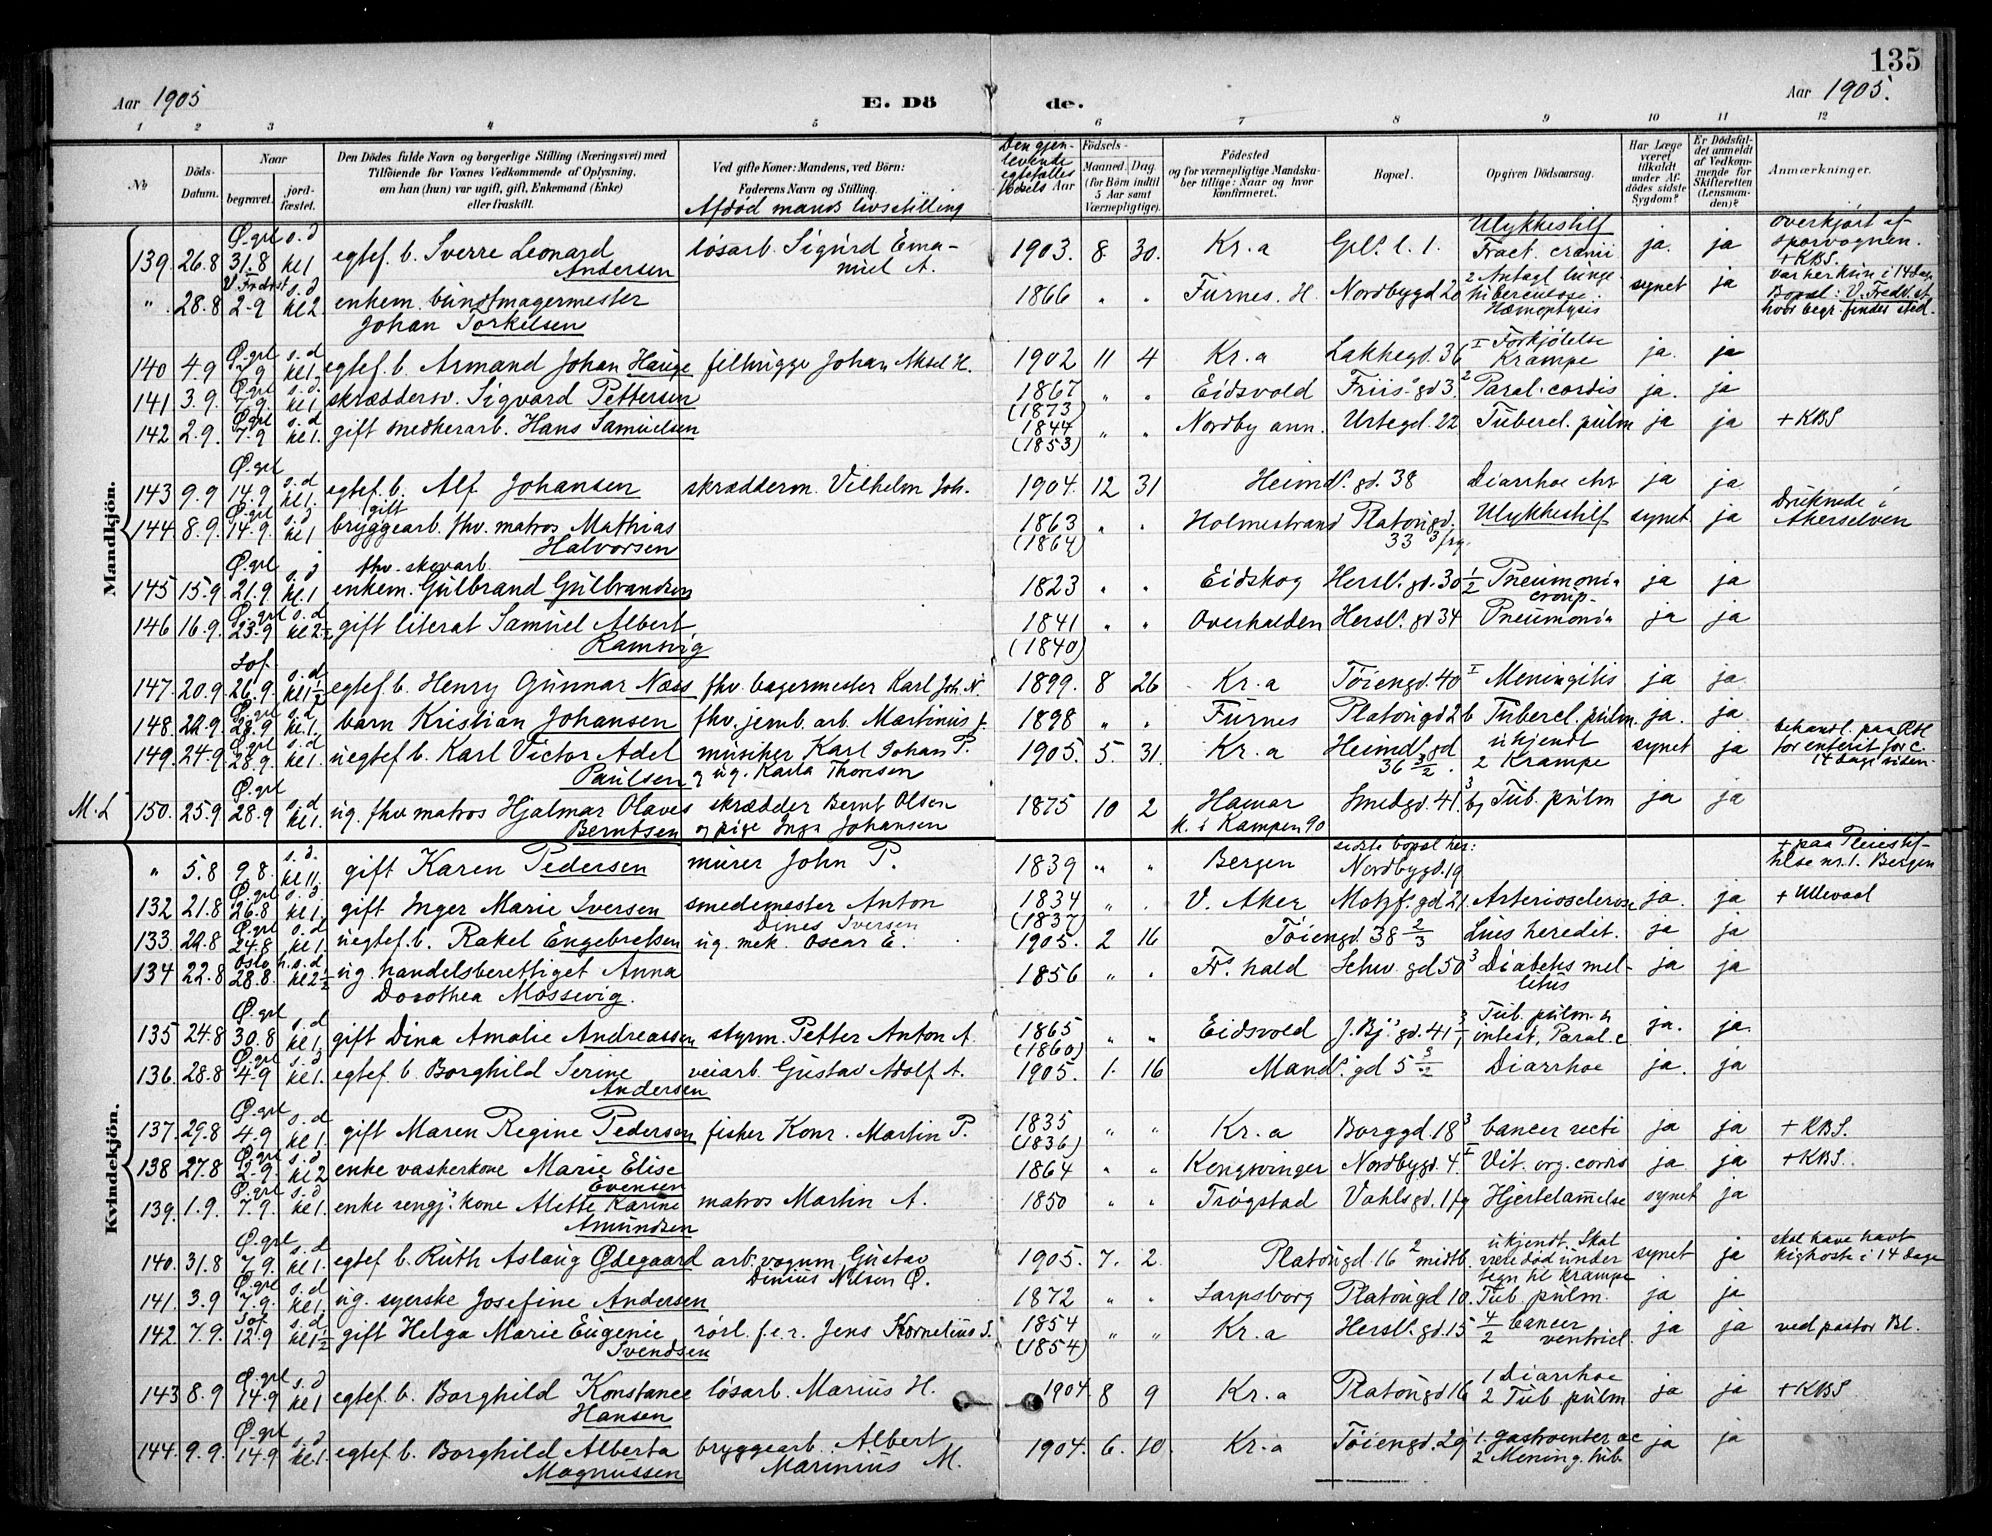 135
Aar 1905
E. Dö
de.
Aar 1905.
1 2 3 4 5 6 7 8 9 10 11 12
No
Döds-Datum.
Naar
begravet.
jord-fæstet.
Den Dödes fulde Navn og borgerlige Stilling (Næringsvei) med
Tilföiende for Voxnes Vedkommende af Oplysning,
om han (hun) var ugift, gift, Enkemand (Enke)
eller fraskilt.
Ved gifte Koner: Mandens, ved Börn:
Faderens Navn og Stilling.
Afdød mands livsstilling
Den gjen-
levende
egtefælles
Födsels-
Aar
Maaned. Dag.
(for Börn indtil
5 Aar samt
Værnepligtige).
Födested
og for værnepligtige Mandska-
ber tillige: Naar og hvor
konfirmeret.
Bopæl.
Opgiven Dödsaarsag.
Har Læge
været
tilkaldt
under Af-
dödes sidste
Sygdom?
Er Dödsfal-
det anmeldt
af Vedkom-
mende for
Skifteretten
(Lensman-
den)?
Anmærkninger.
Mandkjön.
139. 26.8 Ø.grl 31.8 s.d kl 1 egtef. b. Sverre Leonard Andersen løsarb. Sigurd Ema-nuel A. 1903. 8 30. Kr.a Grl. l. 1. Ulykkestilf Fract. cranii ja. ja overkjørt af sporvognen. +KBS.
" 28.8 2-9 s.d kl 2. enkem. buntmagermester Johan Torkelsen 1866 " " Furnes. H. Nordbygd 20 2 Antagl. lunge tuberculose. Hæmoptysis synet ja var her kun i 14 dage Bopæl: V. Fredr.st hvor begr. finder sted.
140 4.9 Ø.grl 7.9 s.d kl 1. egtef. b. Armand Johan Hauge filhugge Johan Aksel H. 1902 11 4 Kr.a Lakkegd. 36 I Forkjølelse Krampe ja. ja
141 3.9. Ø.grl 7.9. s.d. kl 1. skræddersv. Sigvard Pettersen 1867 (1873) " " Eidsvold Friis' gd 3. 2 Paral. cordis ja. ja
142 2.9. Ø.grl 7.9 s.d kl 1. gift snedkerarb. Hans Samuelsen 1844 (1853) " " Nordby ann. Urtegd. 22 Tubercl. pulm ja ja + KBS
143 9.9 Ø.grl 14.9 s.d kl 1. egtef. b. Alf Johansen skrædderm. Vilhelm Joh. 1904. 12 31 Heimd. gd. 38 Diarrhoe chr ja ja
144 8.9 Ø.grl 14.9 s.d kl 1 gift bryggearb. fhv. matros Mathias Halvorsen 1863 (1864) " " Holmestrand Platougd. 33 3 frg. Ulykkestilf synet ja Druknede i Akerselven
145 15.9 Ø.grl 21.9 s.d kl. 1 fhv. skovarb. enkem. Gulbrand Gulbrandsen 1823 " " Eidskog Hersl. gd. 30 1/2 Pneumonia croup. ja ja
146 16.9 Ø.grl 23.9 s.d kl 2½ gift literat Samuel Albert Ramsvig 1841 (1840) " " Overhalden Hersl. gd 34 Pneumonia ja ja
147. 20.9 Sof 26.9. s.d kl 1½ egtef. b. Henry Gunnar Næss fhv. bagermester Karl Joh. N. 1899. 8 26 Kr.a Tøiengd. 40 I Meningitis ja ja
148. 22.9 Ø.grl 28.9 s.d kl. 1. barn Kristian Johansen fhv. jernb. arb. Martinius J. 1898 " " Furnes Platougd 2 b Tubercl. pulm. ja. ja
149. 24.9 Ø.grl 28.9. s.d kl 1. uegtef. b. Karl Victor Adel Paulsen musiker Karl Johan P. og ug. Karla Thoresen 1905. 5. 31. Kr.a Heimdl. gd 36 3/2. ukjendt 2 Krampe synet ja behandl. paa for enterit for c. 14 dage siden
M.L 150. 25.9 Ø.grl 28.9 s.d kl 1. ug. fhv matros Hjalmar Olaves Berntsen skrædder Bernt Olsen og pige Inga Johansen 1875 10 2 Hamar k. i Kampen 90 Smedgd. 41. 3 bg Tub. pulm ja ja
Kvindekjön.
" 5.8 9.8 s.d. kl 11. gift Karen Pedersen murer John P. 1839 " " Bergen sidste bopæl her: Nordbygd. 19 + paa Pleiestif-telse nr. 1. Bergen
132 21.8 Ø.grl 26.8 s.d. kl 1. gift Inger Marie Iversen smedemester Anton Dines Iversen 1834 (1837) " . V. Aker Motzf. gd 21. Arteriosclerose ja. ja + Ullevaal
133. 22.8 Ø.grl 24.8 s.d kl 1. uegtef. b. Rakel Engebretsen ug. mek. Oscar E. 1905. 2 16 Tøiengd. 38 2/3 Lues heredit. ja ja
134 22.8 Oslo h. 28.8. s.d kl 2½ ug. handelsberettiget Anna Dorothea Mossevig. 1856 " " Fr. hald Schw. gd 50 3 Diabetes mel-litus ja ja
135 24.8 Ø.grl 30.8 s.d kl 1. gift Dina Amalie Andreassen styrm. Petter Anton A. 1865 (1860) " " Eidsvold J. Bj.' gd. 41 Tub. pulm. & intest, Paral. c ja. ja
136. 28.8 Ø.grl 4.9 s.d kl 1. egtef. b. Borghild Serine Andersen veiarb. Gustav Adolf A. 1905. 1. 16 Mand. gd 5 Diarrhoe ja. ja
137. 29.8 Ø.grl 4.9 s.d kl 1. gift Maren Regine Pedersen fisker Konr. Martin P. 1835 (1836) " " Kr.a Borggd. 18 3 Cancer recti ja ja + KBS.
138 27.8 Ø.grl 2.9. s.d kl 2 enke vaskerkone Marie Elise Evensen 1864 " " Kongsvinger Nordbygd. 4. I Vit. org. cordis ja ja + KBS.
139. 1.9. Ø.grl 7.9. s.d kl 1. enke rengj.' kone Alette Karine Amundsen matros Martin A. 1850 " " Trøgstad Vahlsgd. 1 fg Hjertelammelse synet ja
140. 31.8 Ø.grl 7.9. s.d kl 1. egtef. b. Ruth Aslaug Ødegaard arb. vognm. Gustav Dinius Nilsen Ø. 1905. 7. 2. Platougd 16 2 midtb. ukjendt. Skal være død under tegn til krampe synet ja skal have havt kighoste i 14 dage
141. 3.9 Ø.grl 7.9. s.d kl 1. ug. syerske Josefine Andersen 1872 " " Sarpsborg Platougd 10. Tub. pulm. ja ja
142. 7.9. Sof. 12.9 s.d kl 1½ gift Helga Marie Eugenie Svendsen rørl. f.e.r. Jens Kornelius S. 1854 (1854) " " Kr.a Hersl. gd. 15 4/2 Cancer ventricl. ja ja ved pastor Bl.
143 8.9 Ø.grl 14.9 s.d kl 1 egtef. b. Borghild Konstance Hansen løsarb. Marius H. 1904 8 9 Kr.a Platougd 16 1 Diarrhoe 2 Tub. pulm ja ja + KBS
144. 9.9. Ø.grl 14.9 s.d kl 1. egtef. b. Borghild Alberta Magnussen bryggearb. Albert Marinius M. 1904. 6. 10. Kr.a Tøiengd. 29 1. gastroenter ac 2 Mening. tub. ja ja